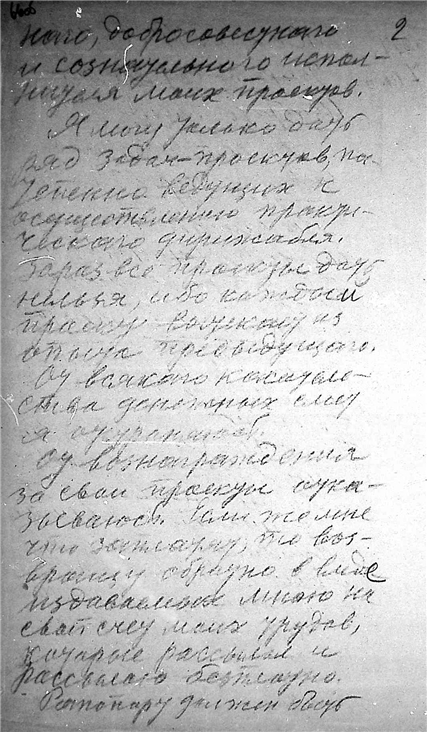 2
ного, добросовестного
и сознательного испол-
нителя моих проектов.
Я могу только дать
ряд задач-проектов, по-
степенно ведущих к
осуществлению практи-
ческого дирижабля.
Зараз все проекты дать
нельзя, ибо каждый
проект вытекает из
опыта предыдущего.
От всякого
денежных смет
я
От вознаграждения
за свои проекты отка-
зываюсь. Если же мне
что заплатят, то воз-
вращу обратно в виде
издаваемых мною на
свой счет моих трудов,
которые рассылал и
рассылаю бесплатно.
должен быть